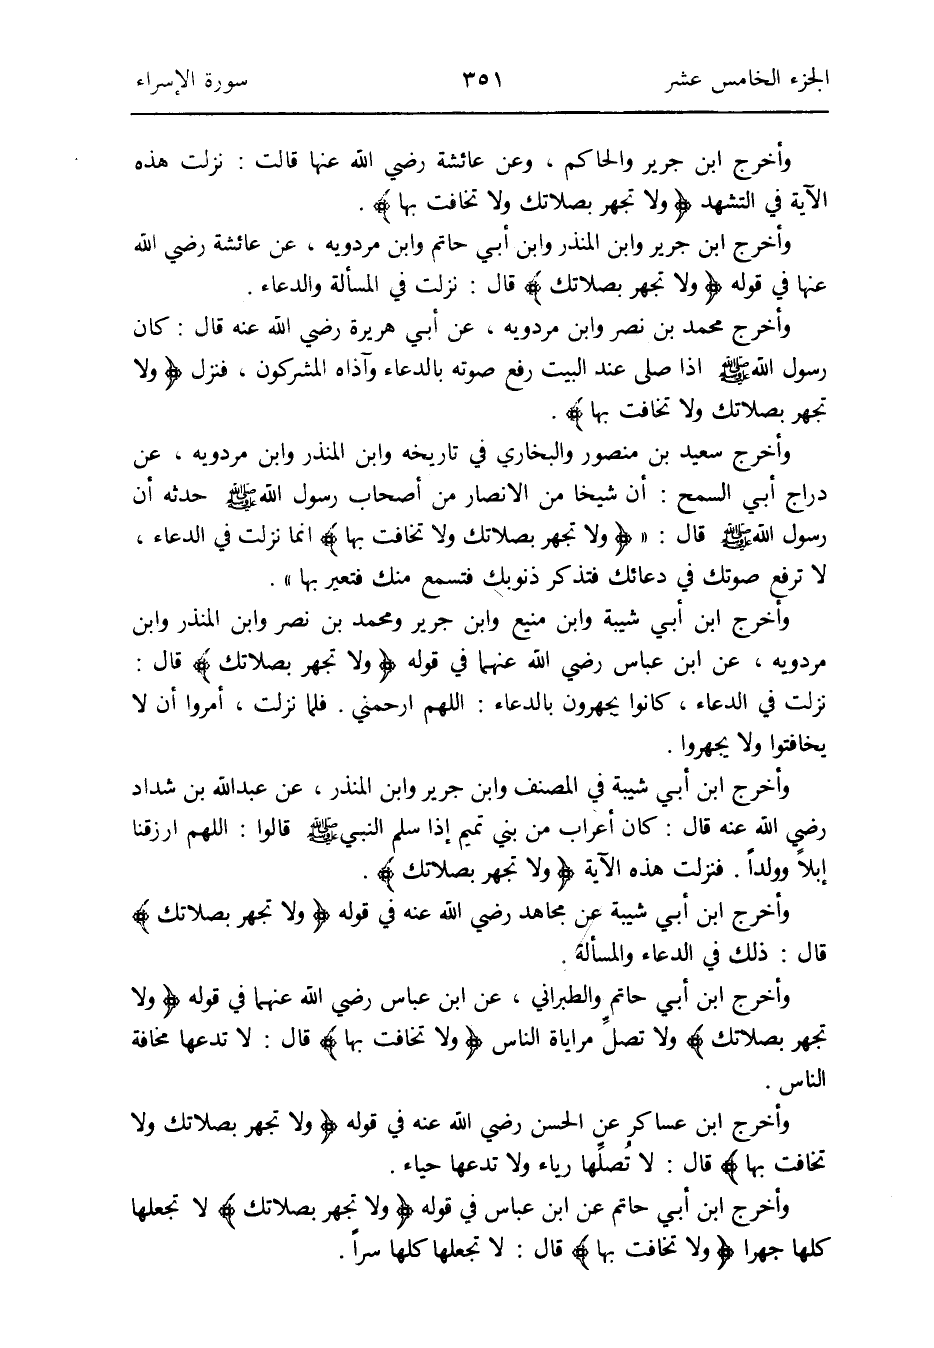 الجزء الخامس عشر ٣٥١ سورة الإسراء
وأخرج ابن جرير والحاكم ، وعن عائشة رضي الله عنها قالت : نزلت هذه
الآية في التشهد ﴿ ولا تجهر بصلاتك ولا تخافت بها ﴾ .
وأخرج ابن جرير وابن المنذر وابن أبي حاتم وابن مردويه ، عن عائشة رضي الله
عنها في قوله ﴿ ولا تجهر بصلاتك ﴾ قال : نزلت في المسألة والدعاء .
وأخرج محمد بن نصر وابن مردويه ، عن أبي هريرة رضي الله عنه قال : كان
رسول الله ﷺ اذا صلى عند البيت رفع صوته بالدعاء وآذاه المشركون ، فنزل ﴿ ولا
تجهر بصلاتك ولا تخافت بها ﴾ .
وأخرج سعيد بن منصور والبخاري في تاريخه وابن المنذر وابن مردويه ، عن
دراج أبي السمح : أن شيخا من الانصار من أصحاب رسول الله ﷺ حدثه أن
رسول الله ﷺ قال : « ﴿ ولا تجهر بصلاتك ولا تخافت بها ﴾ انما نزلت في الدعاء ،
لا ترفع صوتك في دعائك فتذكر ذنوبك فتسمع منك فتعير بها » .
وأخرج ابن أبي شيبة وابن منيع وابن جرير ومحمد بن نصر وابن المنذر وابن
مردويه ، عن ابن عباس رضي الله عنهما في قوله ﴿ ولا تجهر بصلاتك ﴾ قال :
نزلت في الدعاء ، كانوا يجهرون بالدعاء : اللهم ارحمني . فلما نزلت ، أمروا أن لا
يخافتوا ولا يجهروا .
وأخرج ابن أبي شيبة في المصنف وابن جرير وابن المنذر ، عن عبدالله بن شداد
رضي الله عنه قال : كان أعراب من بني تميم إذا سلم النبي ﷺ قالوا : اللهم ارزقنا
إبلاً وولداً . فنزلت هذه الآية ﴿ ولا تجهر بصلاتك ﴾ .
وأخرج ابن أبي شيبة عن مجاهد رضي الله عنه في قوله ﴿ ولا تجهر بصلاتك ﴾
قال : ذلك في الدعاء والمسألة .
وأخرج ابن أبي حاتم والطبراني ، عن ابن عباس رضي الله عنهما في قوله ﴿ ولا
تجهر بصلاتك ﴾ ولا تصلِّ مراياة الناس ﴿ ولا تخافت بها ﴾ قال : لا تدعها مخافة
الناس .
وأخرج ابن عساكر عن الحسن رضي الله عنه في قوله ﴿ ولا تجهر بصلاتك ولا
تخافت بها ﴾ قال : لا تُصلِّها رياء ولا تدعها حياء .
وأخرج ابن أبي حاتم عن ابن عباس في قوله ﴿ ولا تجهر بصلاتك ﴾ لا تجعلها
كلها جهرا ﴿ ولا تخافت بها ﴾ قال : لا تجعلها كلها سراً .